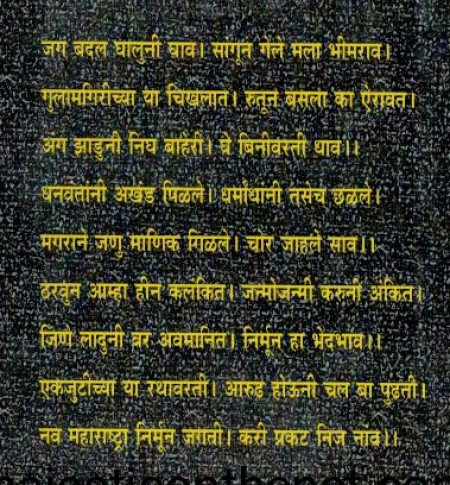 जग बदल घालुनी घाव। सांगून गेले मला भीमराव।
गुलामगिरीच्या या चिखलात। रुतून बसला का ऐरावत।
अंग झाडुनी निघ बाहेरी। घे बिनीवरती धाव।।
धनवंतांनी अखंड पिळले। धर्मांधानी तसेच छळले।
मगराने जणु माणिक गिळले। चोर जाहले साव।।
ठरवून आम्हा हीन कलंकित। जन्मोजन्मी करुनी अंकित।
जिणे लादुनी वर अवमानित। निर्मून हा भेदभाव।।
एकजुटीच्या या रथावरती। आरुढ होऊनी चल बा पुढती।
नव महाराष्ट्रा निर्मून जगती। करी प्रकट निज नांव।।